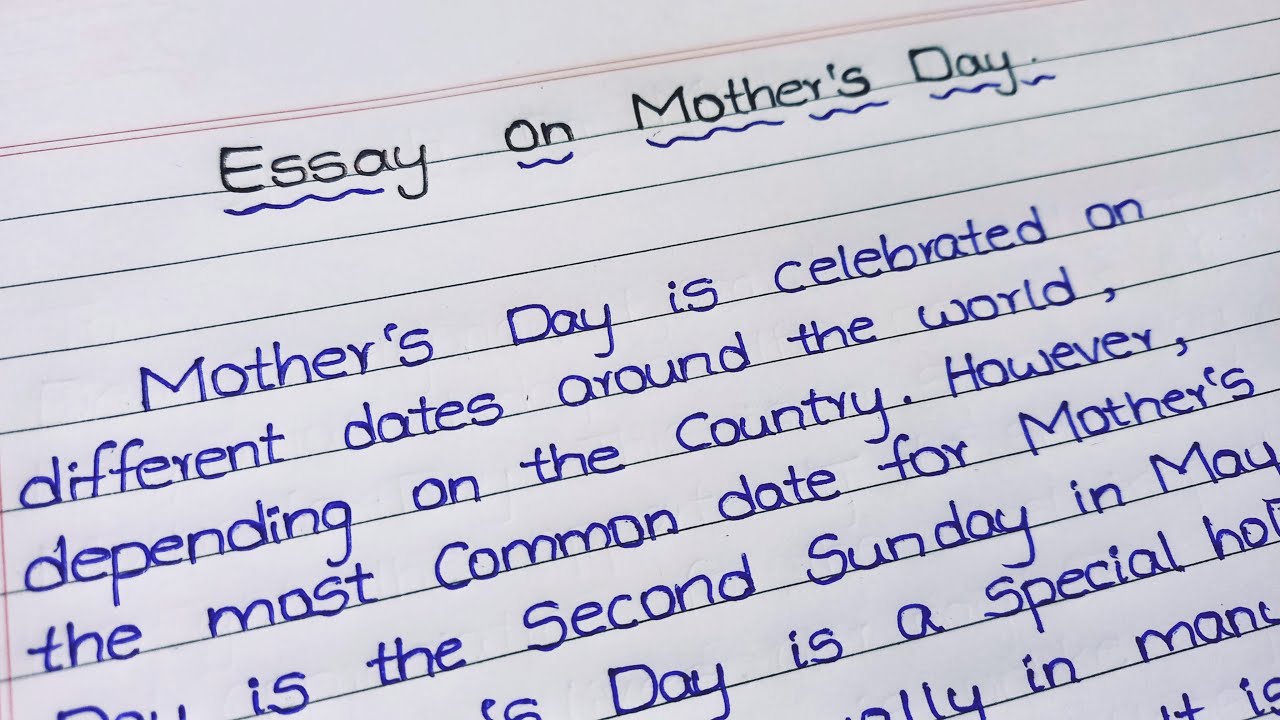 Essay on Mother's Day.
Mother's Day is celebrated on
different dates around the world,
depending on the Country. However,
the most Common date for Mother's
Day is the Second Sunday in May
Day is a special
in
is